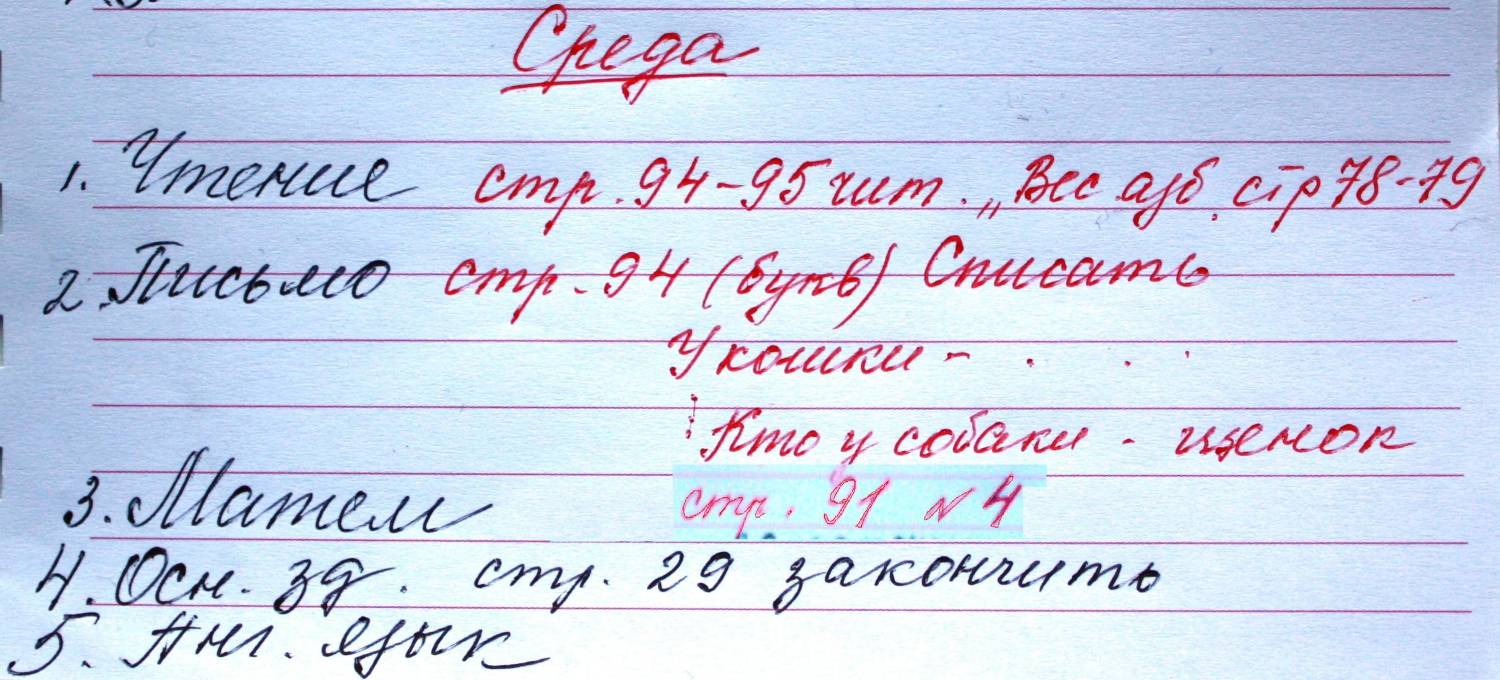 Среда
1. Чтение стр. 94-95 чит. „Вес азб. стр 78-79
2. Письмо стр. 94 (букв) Списать
У кошки - . . .
Кто у собаки - щенок
3. Матем стр. 91 N 4
4. Осн. зд. стр. 29 закончить
5. Анг. язык